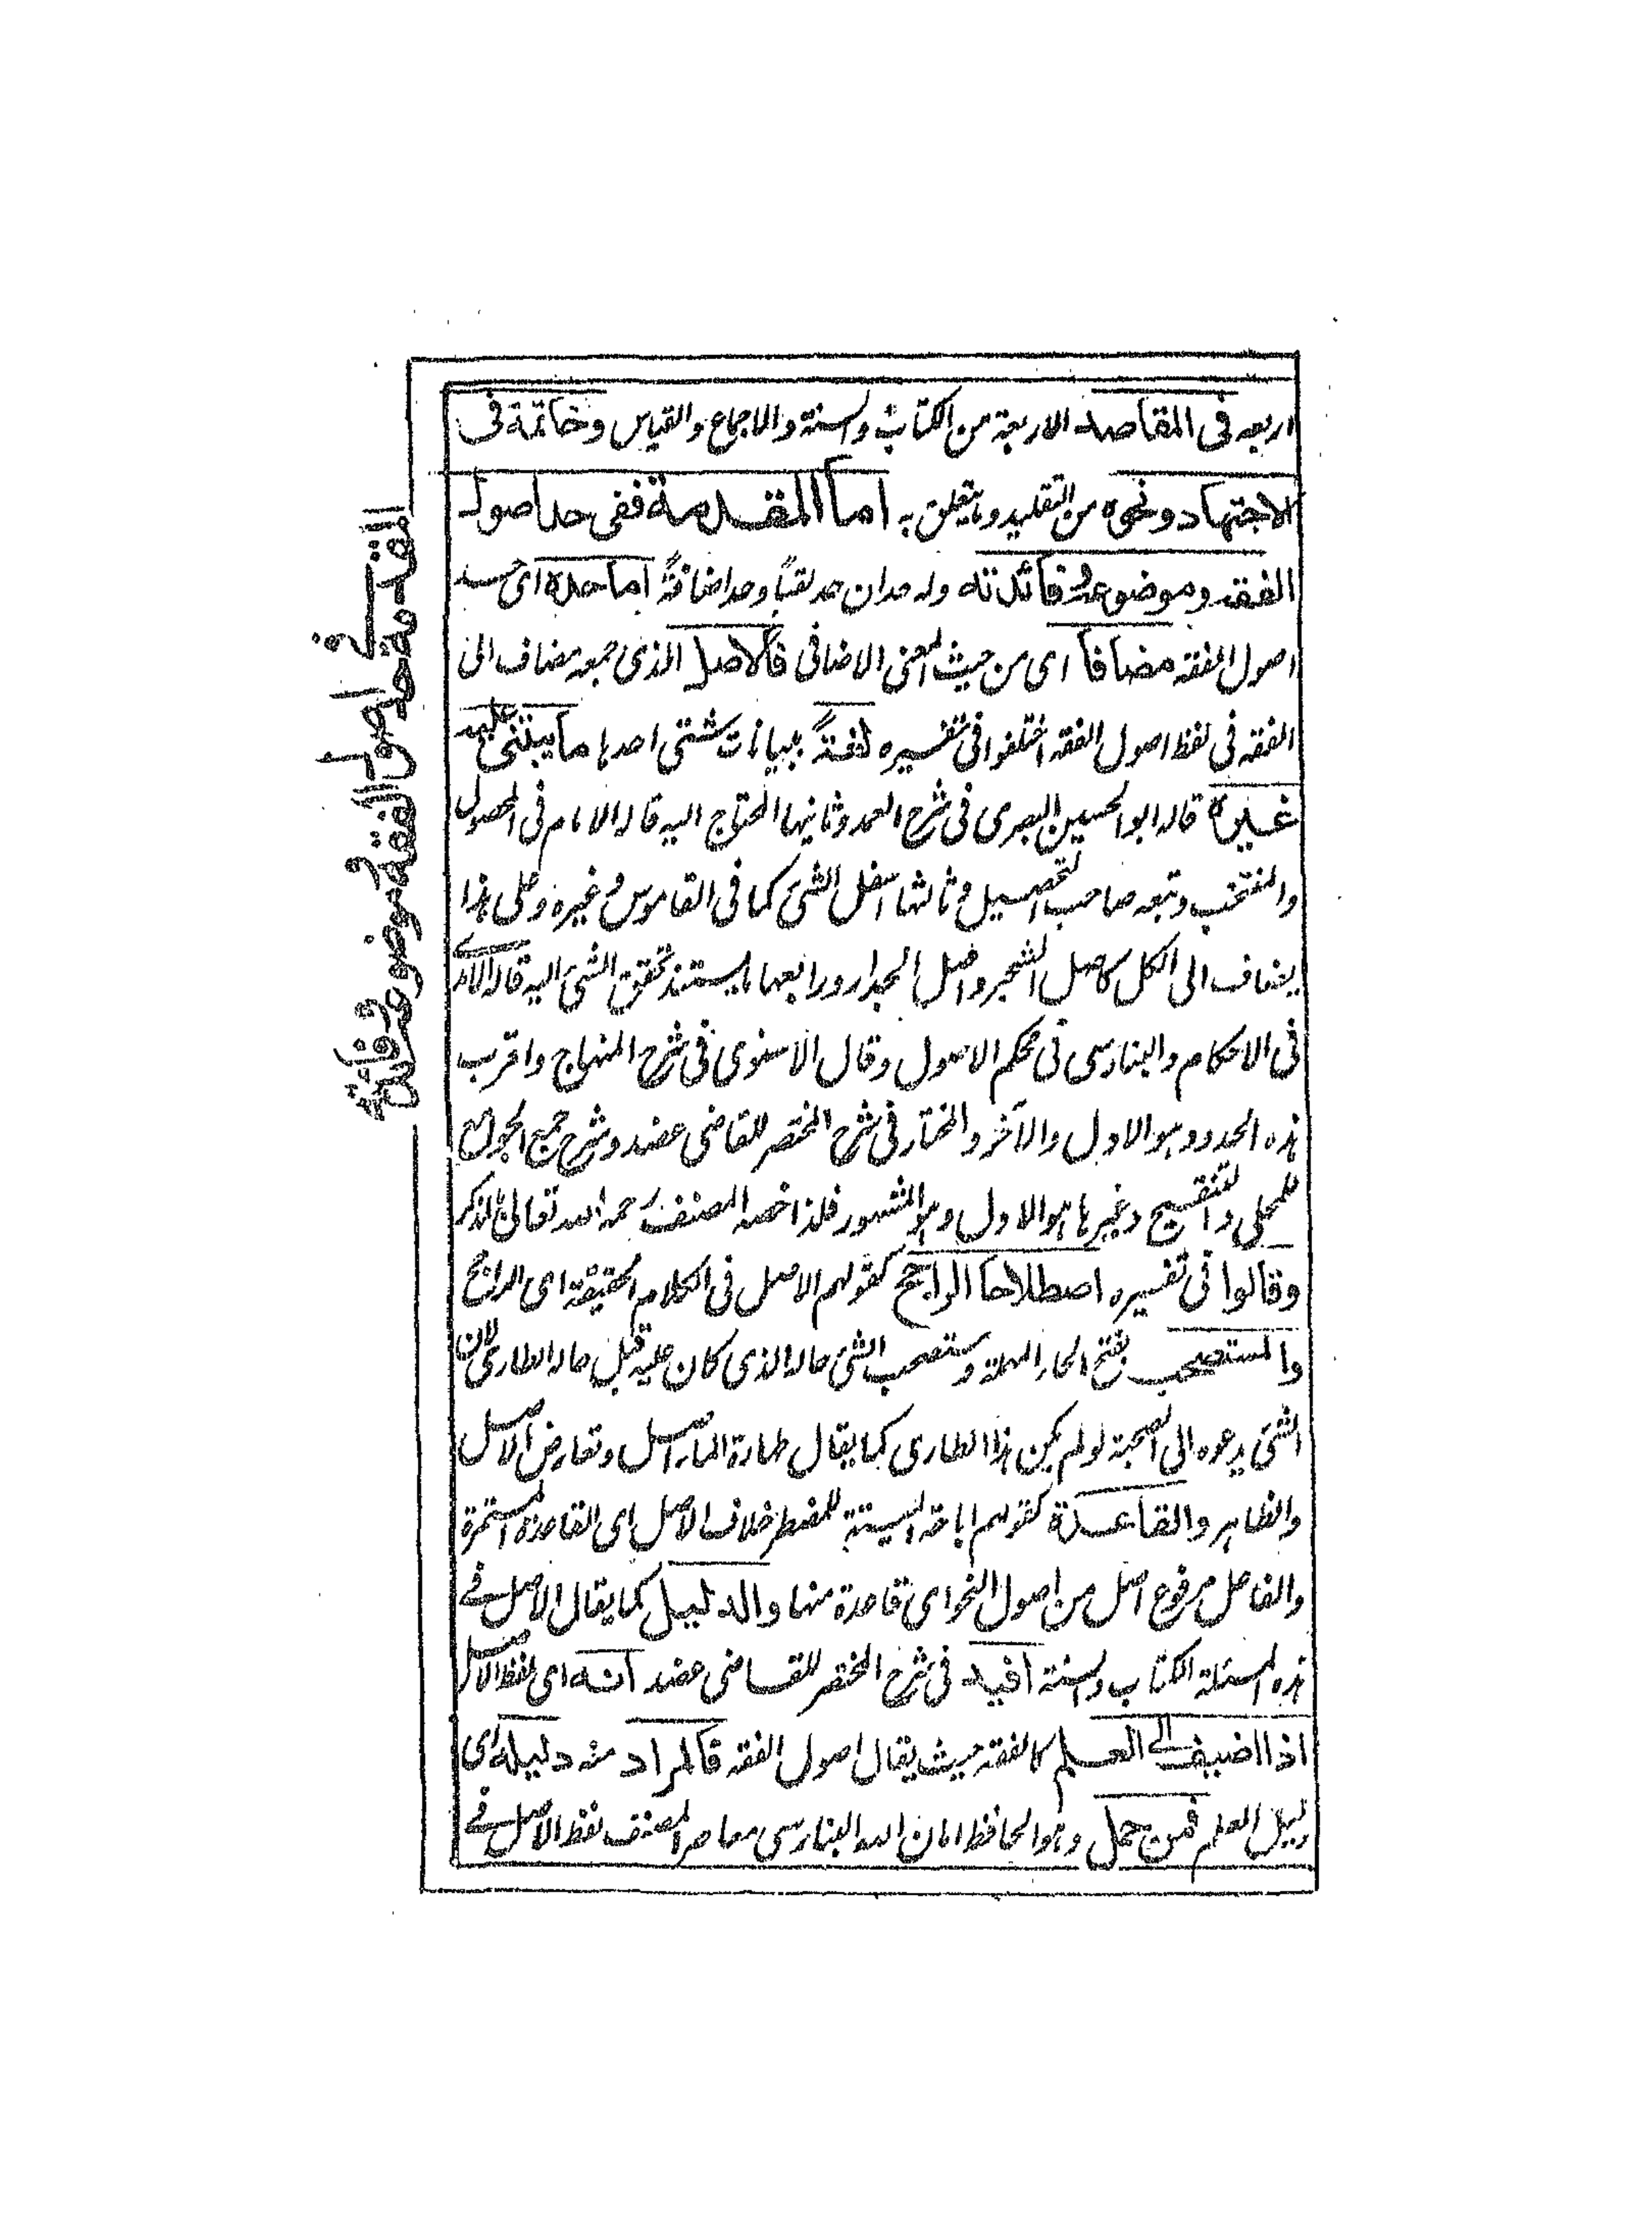 اربعه فى المقاصد الاربعة من الكتاب والسنة والاجماع والقياس وخاتمة فى
الاجتهاد ونحوه من التقليد وما يتعلق به اما المقدمة ففى حد اصول
الفقه وموضوعه وفائدته وله حدان حد لقباً وحد اضافةً اما حده اى حد
اصول الفقه مضافا اى من حيث المعنى الاضافى فالاصل الذى جمعه مضاف الى
الفقه فى لفظ اصول الفقه اختلفوا فى تفسيره لغةً ببيانات شتى احدها ما يبتنى عليه
غيره قاله ابو الحسين البصرى فى شرح العمد وثانيها المحتاج اليه قاله الامام فى المحصول
والمنتخب وتبعه صاحب التحصيل وثالثها اسفل الشئ كما فى القاموس وغيره وعلى هذا
يضاف الى الكل كاصل الشجر واصل الجدار ورابعها ما يستند تحقق الشئ اليه قاله الآمدى
فى الاحكام والبنارسى فى محكم الاصول وقال الاسنوى فى شرح المنهاج واقرب
هذه الحدود هو الاول والآخر والمختار فى شرح المختصر للقاضى عضد وشرح جمع الجوامع
للمحلى والتنقيح وغيرها هو الاول وهو المشهور فلذا خصه المصنف رحمه الله تعالى بالذكر
وقالوا فى تفسيره اصطلاحا الراجح كقولهم الاصل فى الكلام الحقيقة اى الراجح
والمستصحب بفتح الحاء المهملة ومستصحب الشئ حاله الذى كان عليه قبل حاله الطارئ لان
الشئ يدعوه الى الصحبة لو لم يكن هذا الطارى كما يقال طهارة الماء اصل وتعارض الاصل
والظاهر والقاعدة كقولهم اباحة الميتة للمضطر خلاف الاصل اى القاعدة المستمرة
والفاعل مرفوع اصل من اصول النحو اى قاعدة منها والدليل كما يقال الاصل فى
هذه المسئلة الكتاب والسنة افيد فى شرح المختصر للقاضى عضد انه اى لفظ الاصل
اذا اضيف الى العلم كالفقه حيث يقال اصول الفقه فالمراد منه دليله اى
دليل العلم فمن حمل وهو الحافظ امان الله البنارسى معاصر المصنف لفظ الاصل فى
المقدمة فى حد اصول الفقه وموضوعه وفائدته